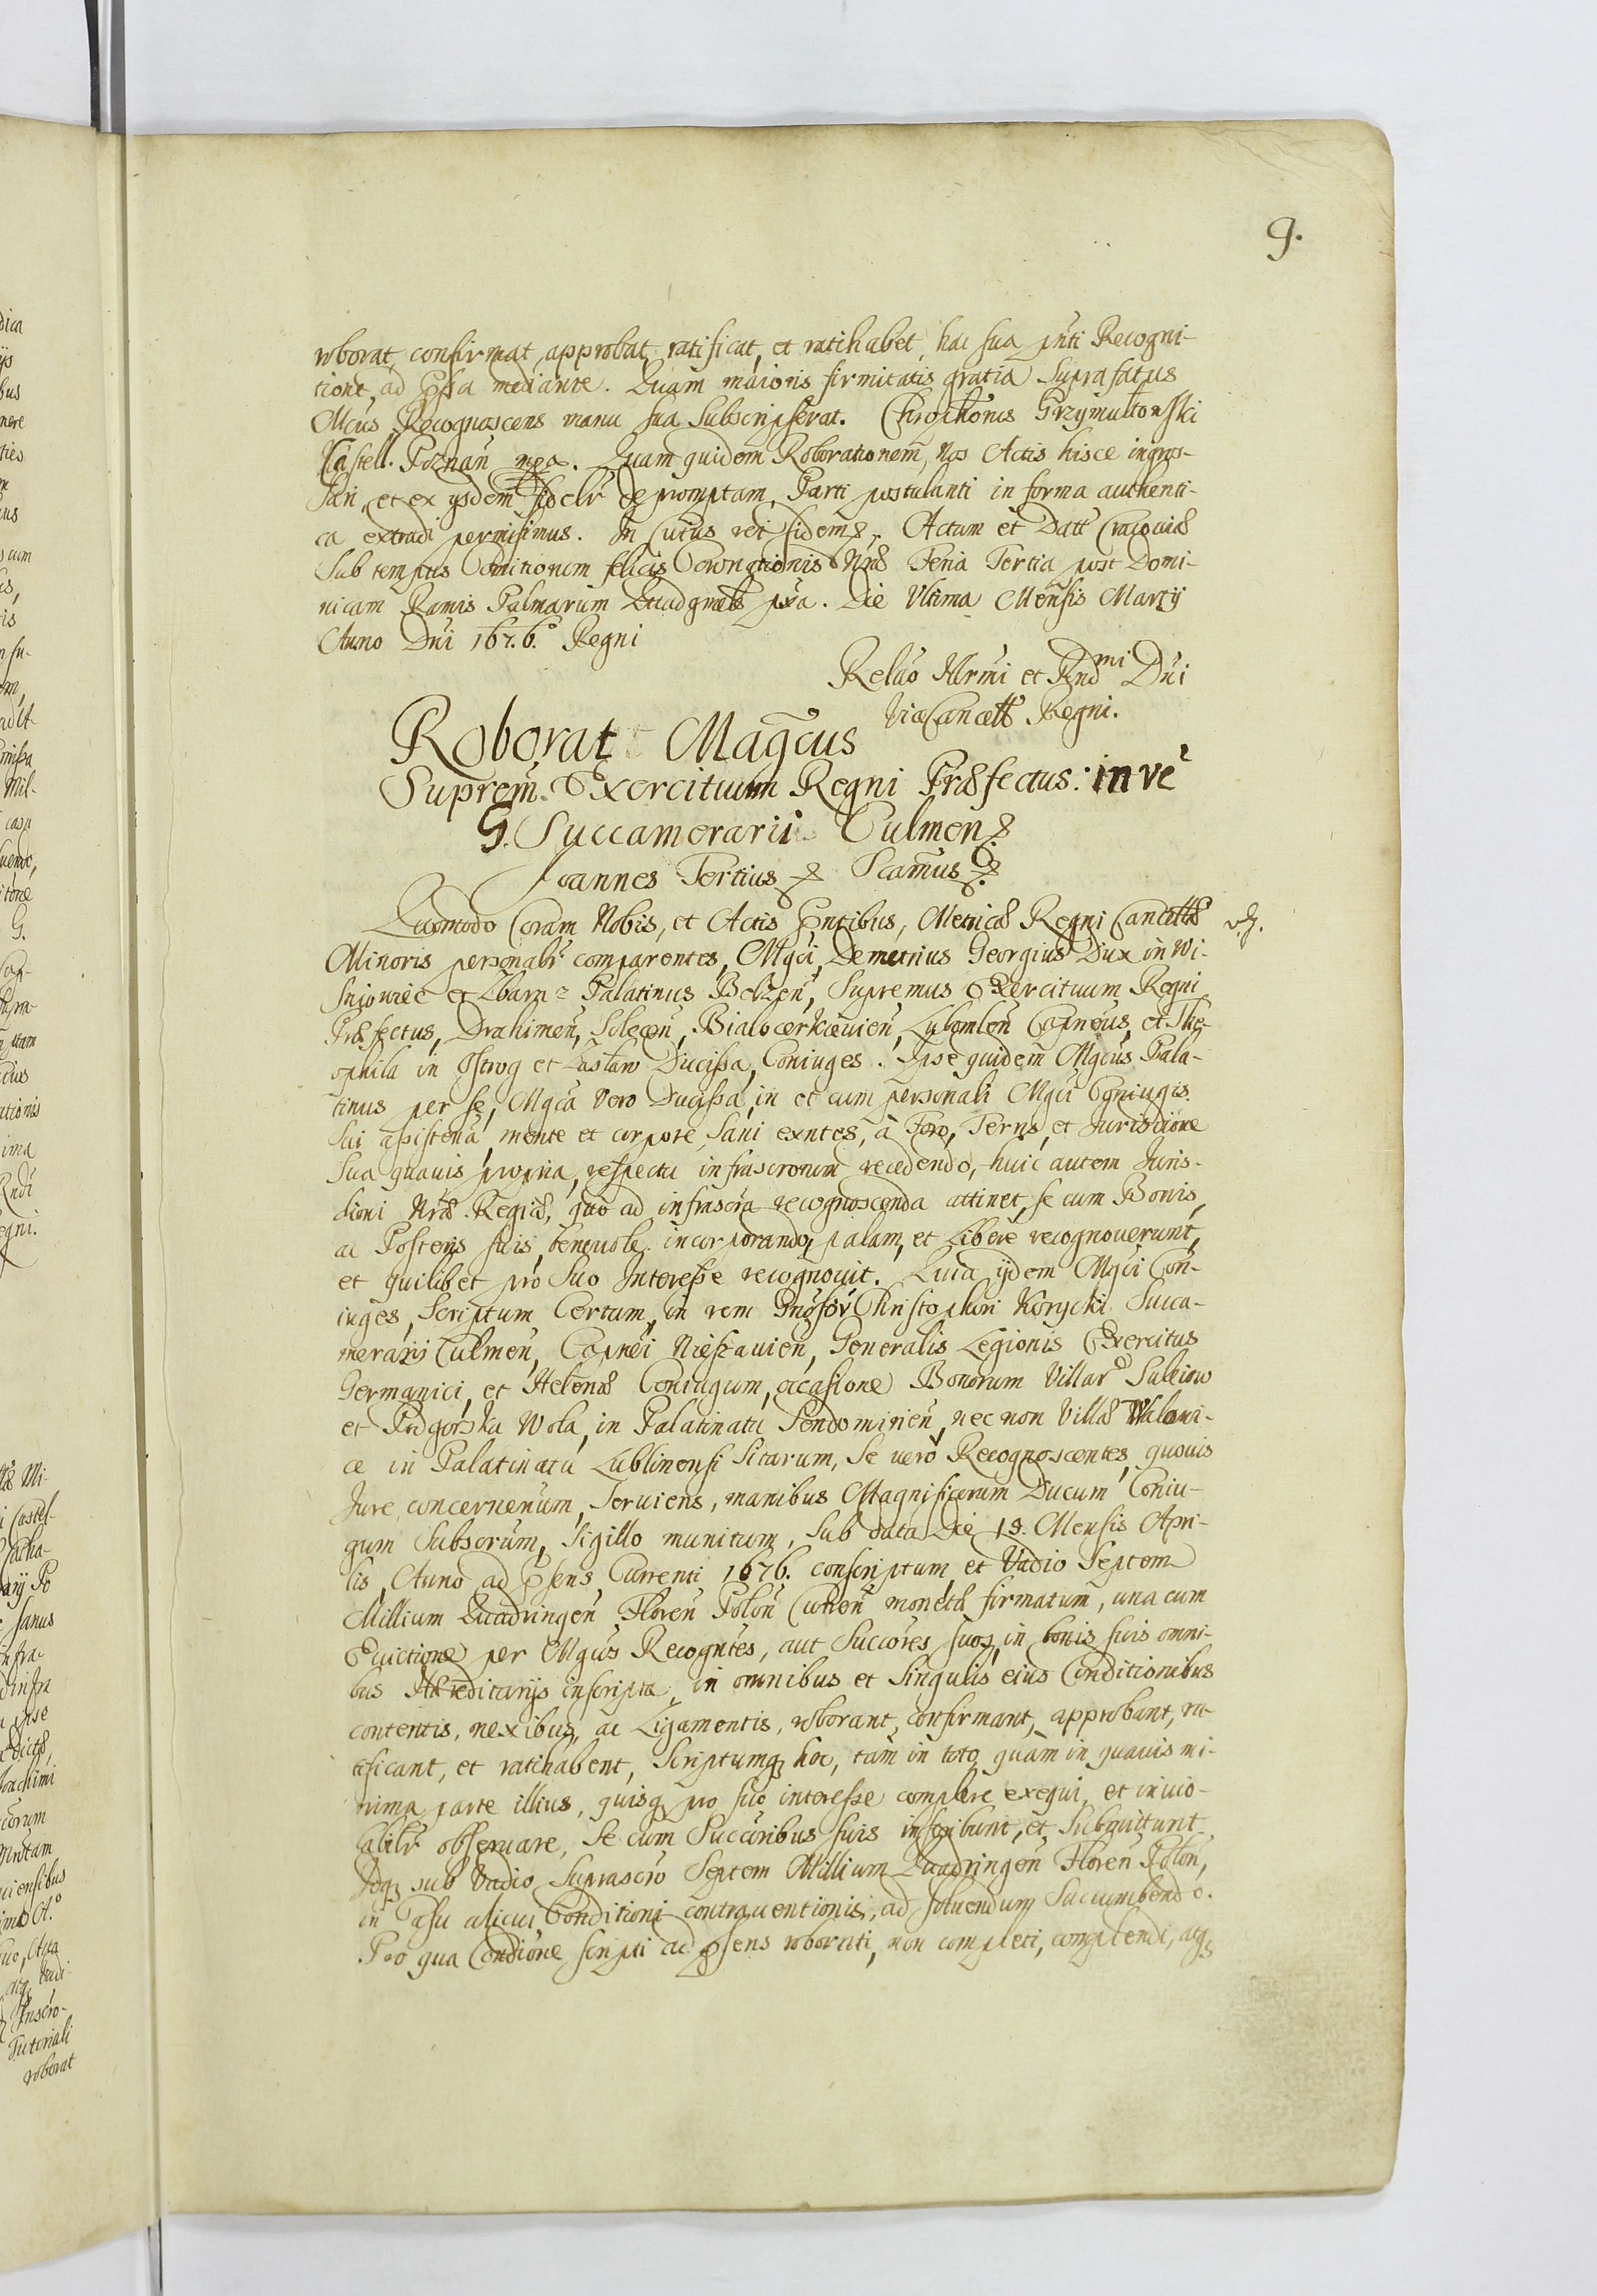 9.
roborat, confirmat, approbat, ratificat, et ratihabet, hac sua pnti Recogni-
tione, ad mediante. Quam maioris firmitatis gratia Suprafatus
Mcus Recognoscens manu sua Subscripserat. Christhonis Grzymultowski
Castell. Poznan mpa. Quam quidem Roborationem, Nos Actis hisce ingros-
sari, et ex ijsdem fidelr depromptam, Parti postulanti in forma authenti-
ca extradi permisimus. In Cuius rei fidem &. Actum et Datt Cracoviæ
Sub tempus Comitiorum felicis Coronationis Nræ Feria Tertia post Domi-
nicam Ramis Palmarum pxa. Die Ultima Mensis Martij
Anno Dni 1676.° Regni
Relao Illrmi et Rndmi Dni
ViceCancell Regni.
Roborat Magcus
Suprem. Exercituum Regni Præfectus: in vé
G. Succamerarii Culmen &.
Joannes Tertius & Scamus &.
Quomodo Coram Nobis, et Actis Pntibus, Metricæ Regni Cancellæ
Minoris personalr comparentes, Mgci, Demetrius Georgius Dux in Wi-
sniowiec et Zbaraz Palatinus Belzen, Supremus Exercituum Regni
Præfectus, Drahimen, Solecen, Bialocerkievien, Lubomlen Capneus, et The-
ophila in Ostrog et Zaslaw Ducissa, Coniuges. Ipse quidem Mgcus Pala-
tinus per se, Mgca Vero Ducissa, in et cum personali Mgci Coniugis
Sui assistena, mente et corpore Sani exntes, à Foro, Terris, et Jurisdione
Sua quavis propria, respectu infrascrorum recedendo, huic autem Juris-
dioni Nræ Regiæ, quo ad infrascra recognoscenda attinet, se cum Bonis,
ac Posteris suis, benevole incorporando, palam, et Libere recognoverunt,
et quilibet pro Suo Interesse recognovit. Quia ijdem Mgci Con-
iuges, Scriptum Certum, in rem Gnosor Christophori Korycki Succa-
merarij Culmen, Capnei Nieszavien, Generalis Legionis Exercitus
Germanici, et Helenæ Coniugum, occasione Bonorum Villar Sulkow
et Podgorska Wola, in Palatinatu Sendomirien, nec non Villæ Walowi-
ce in Palatinatu Lublinensi Sitarum, Se vero Recognoscentes, quovis
Jure concernenum, Serviens, manibus Magnificorum Ducum Coniu-
gum Subscrum, Sigillo munitum, Sub data Die 18. Mensis Apri-
lis, Anno ad psens Currenti 1676. conscriptum et Vadio Septem
Millium Quadringen Floren Polon Curren monetæ firmatum, una cum
Evictione per Mgcos Recogntes, aut Succores suos, in bonis suis omni-
bus Hæreditarijs inscripta, in omnibus et Singulis eius Conditionibus
contentis, nexibus, ac Ligamentis, roborant, confirmant, approbant, ra-
tificant, et ratihabent, Scriptumq hoc, tam in toto, quàm in quavis mi-
nima parte illius, quisq pro suo interesse complere exequi, et invio-
labilr observare, Se cum Succoribus suis inscribunt, et Submittunt
Idq sub Vadio Suprascro Septem Millium Quadringen Floren Polon,
in Casu alicui Conditioni contraventionis, ad solvendum Succumbendo.
Pro qua Condione scripti ad psens roborati, non completi, complendi, atq